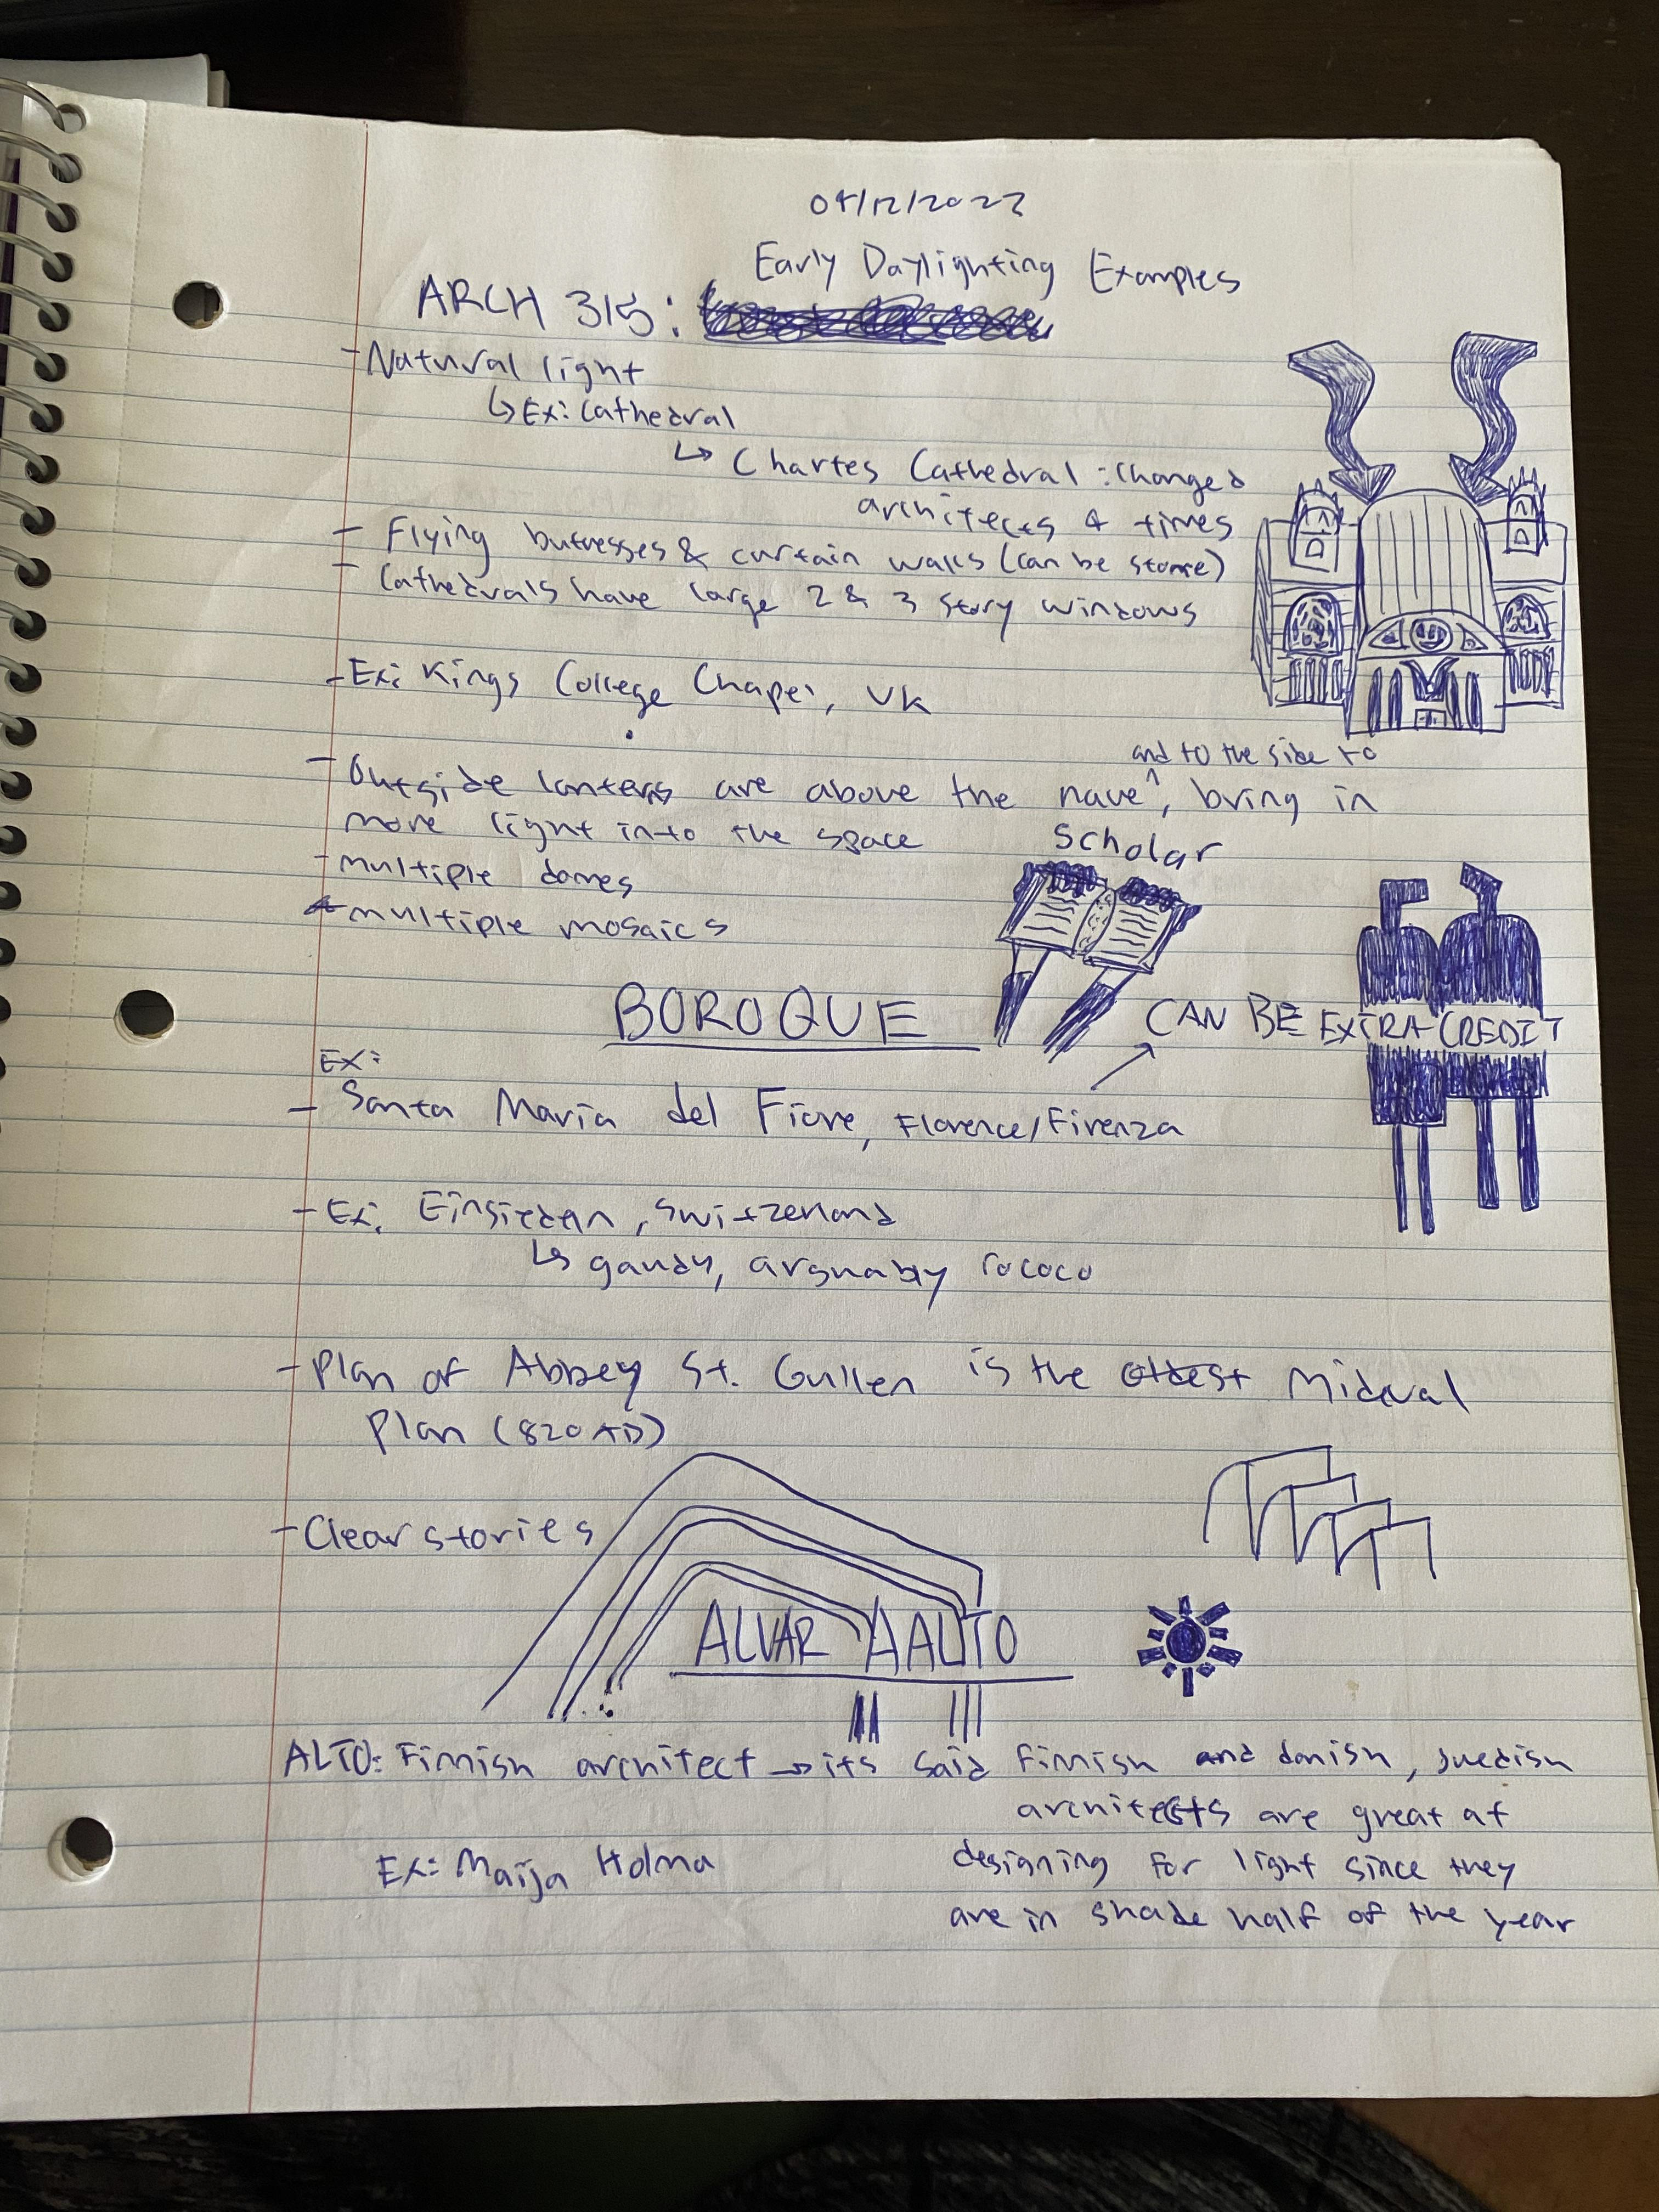 04/12/2023
Early Daylighting Examples
ARCH 315:
- Natural light
↳ Ex: Cathedral
↳ Chartes Cathedral : Changed
architects 4 times
- Flying butresses & curtain walls (can be stone)
- Cathedrals have large 2 & 3 story windows
- Ex: Kings College Chapel, UK
and to the side to
- Outside lanterns are above the nave ^, bring in
more light into the space
Scholar
- multiple domes
- multiple mosaics
BOROQUE
CAN BE EXTRA CREDIT
Ex:
- Santa Maria del Fiore, Florence/Firenza
- Ex: Einsiedeln, Switzerland
↳ gaudy, arguably rococo
- Plan of Abbey St. Gullen is the oldest Mideval
Plan (820 AD)
- Clearstories
ALVAR AALTO
ALTO: Finnish architect → its said Finnish and danish, swedish
architects are great at
Ex: Maija Holma
designing for light since they
are in shade half of the year